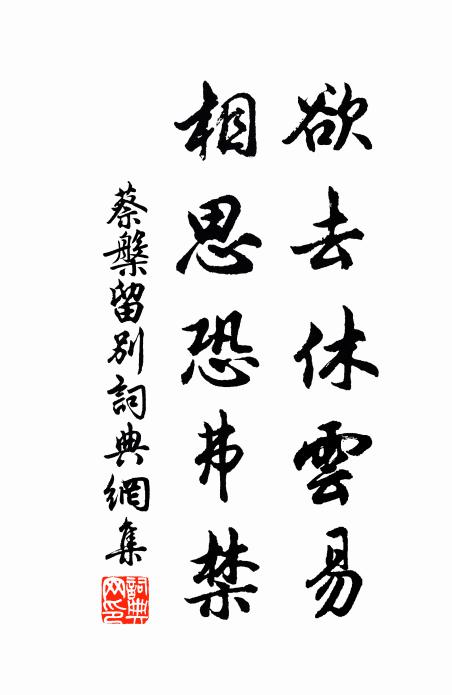 欲去休雲易
相思恐弗禁
蔡槃留別詞典網集
詞典网印